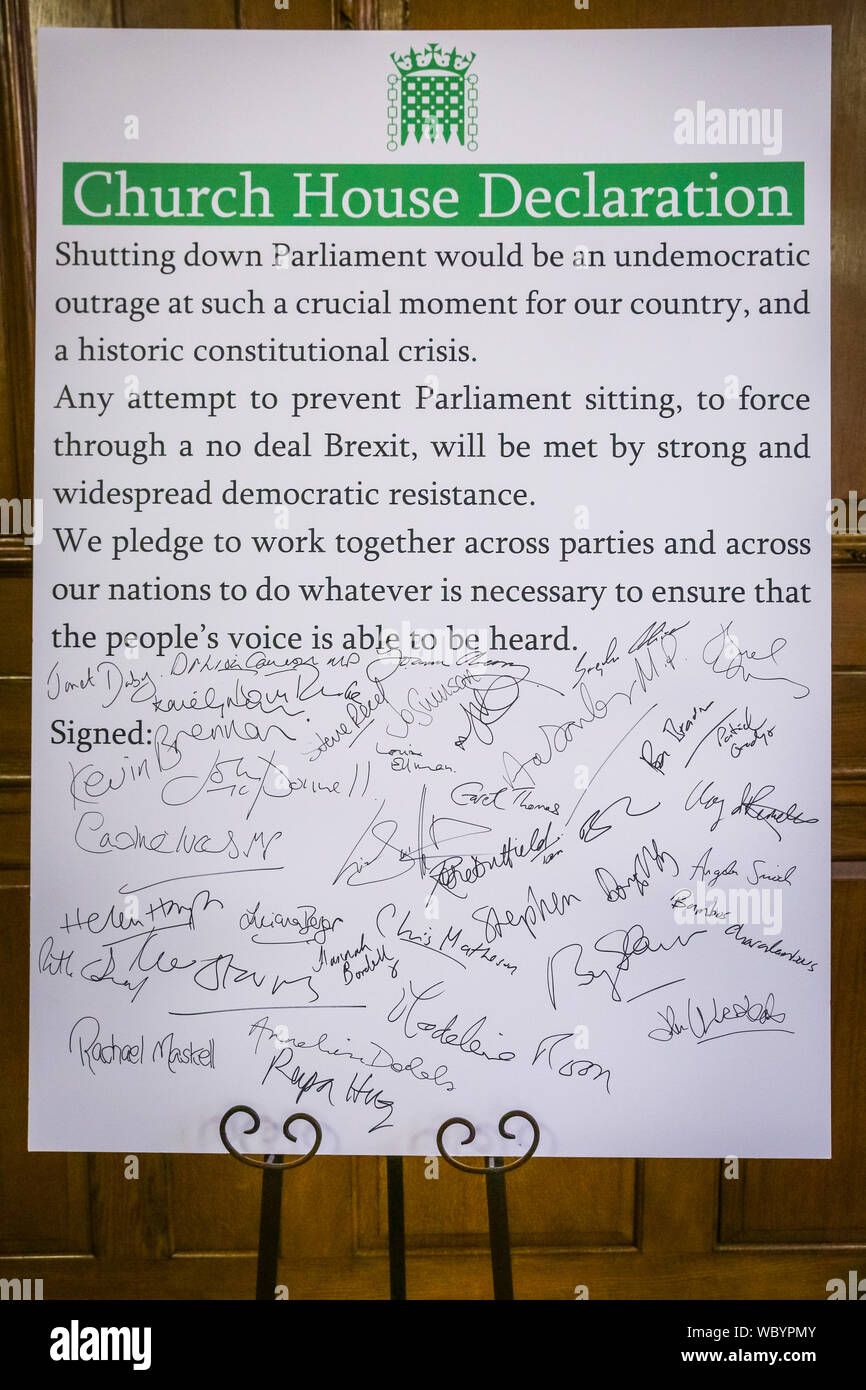 Church House Declaration
Shutting down Parliament would be an undemocratic
outrage at such a crucial moment for our country, and
a historic constitutional crisis.
Any attempt to prevent Parliament sitting, to force
through a no deal Brexit, will be met by strong and
widespread democratic resistance.
We pledge to work together across parties and across
our nations to do whatever is necessary to ensure that
the people's voice is able to be heard.
Janet Daby Dr Lisa Cameron MP
Steve Reed Jo Swinson
Signed: Kevin Brennan
Louise Ellman
John McDonnell Geret Thomas
Caroline Lucas MP
Stephen Doughty Angela Smith
Helen Hayes Luciana Berger Chris Matheson Bambos Charalambous
Hannah Bardell
Rachael Maskell Anneliese Dodds Madeleine Moon
Rupa Huq
a
alamy
alamy
Image ID: WBYPMY
www.alamy.com